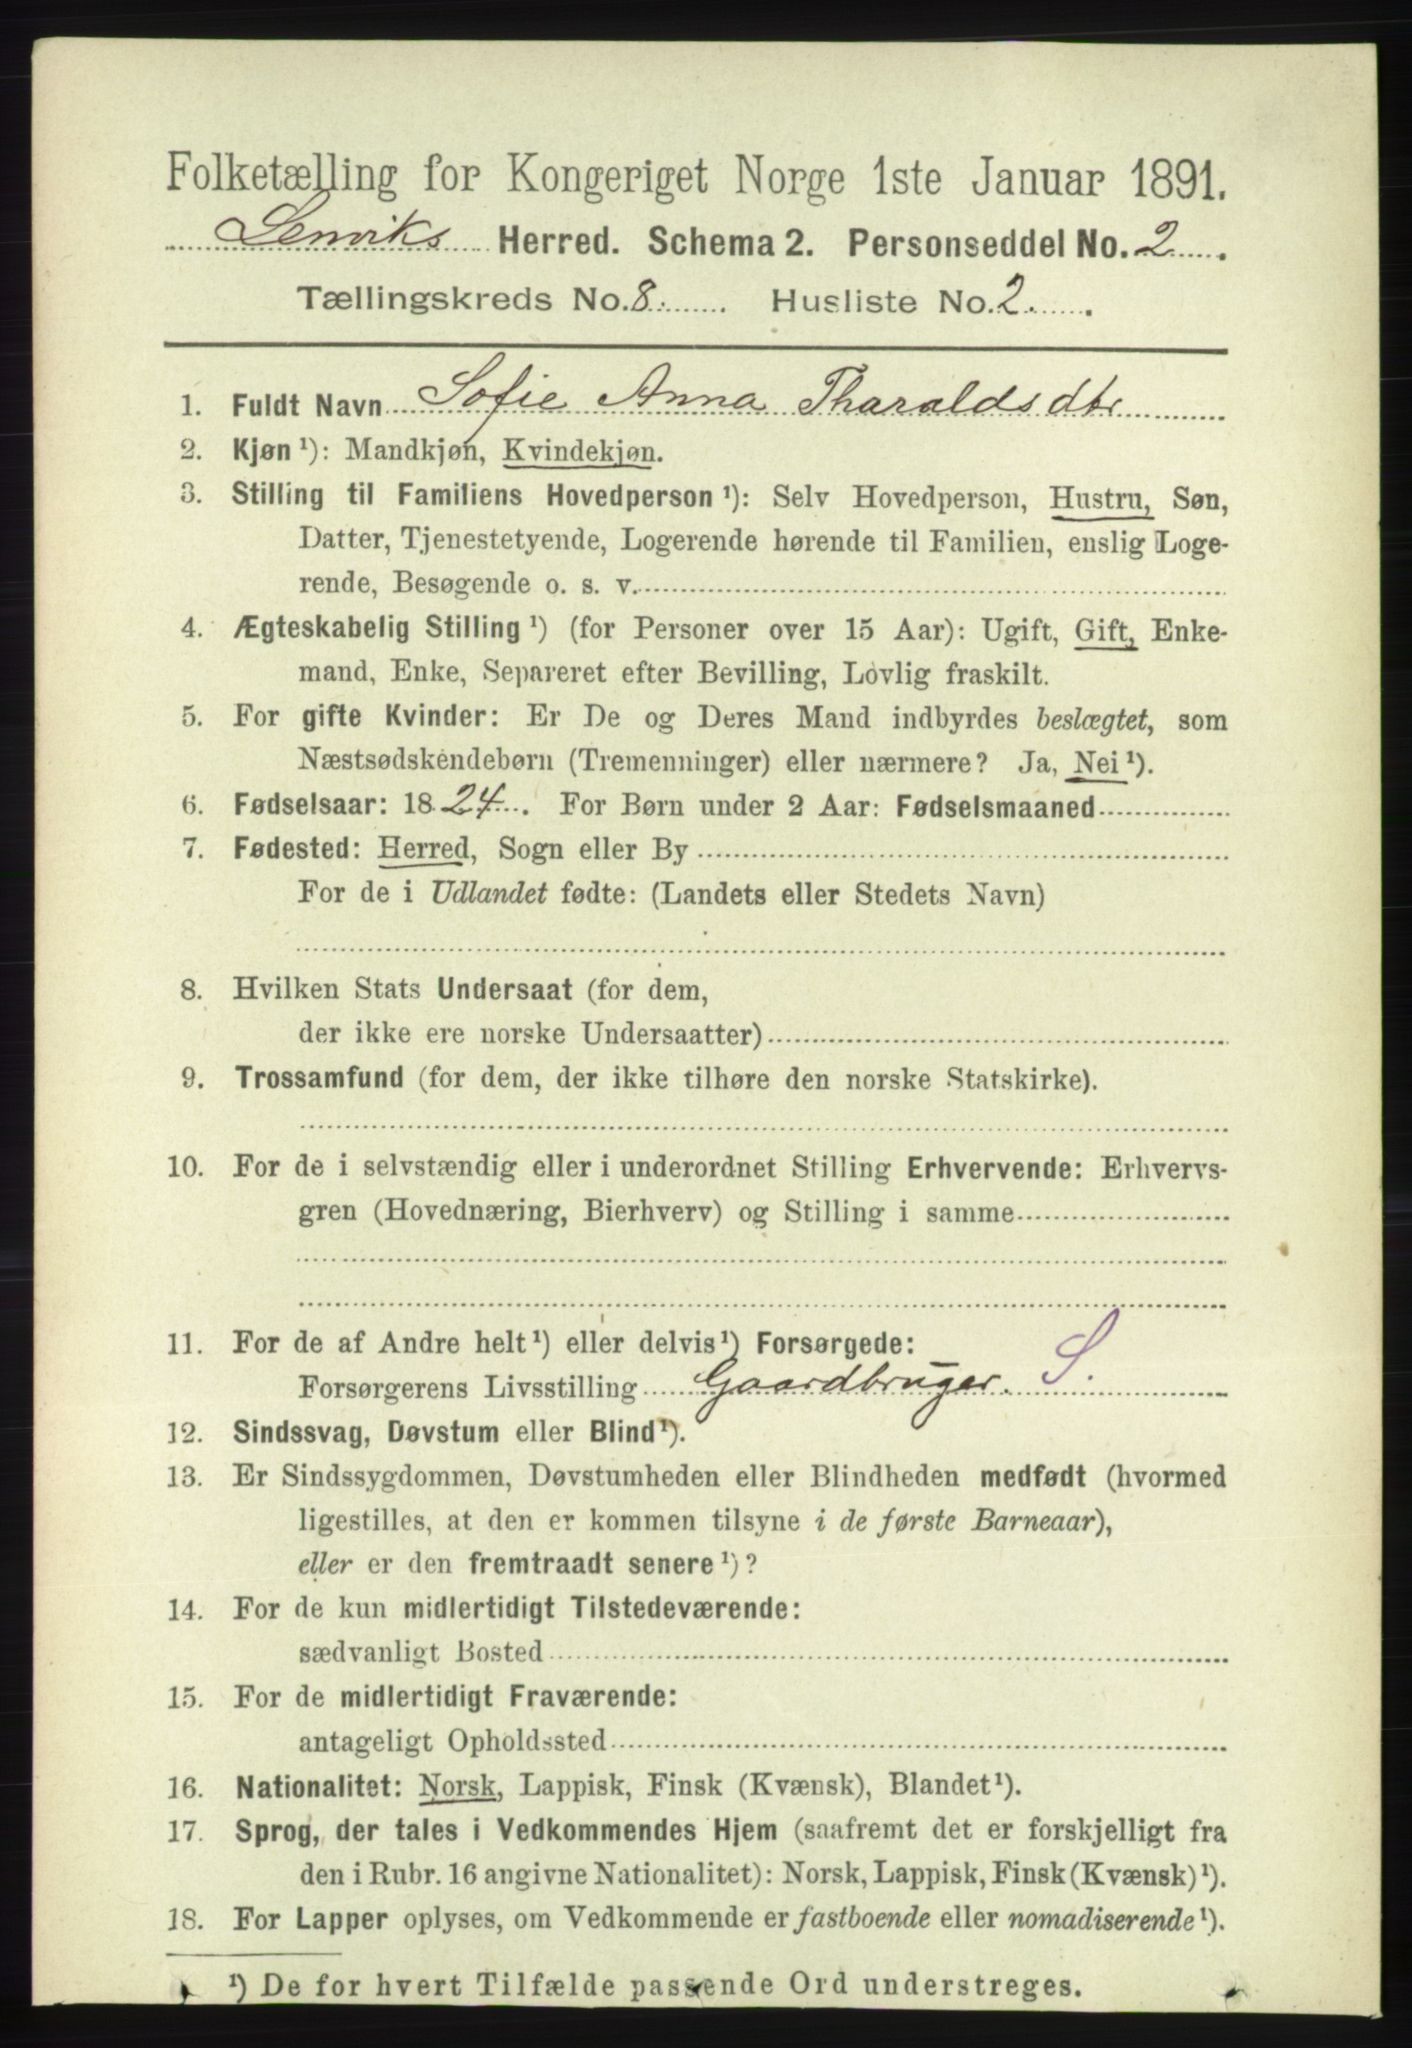 Folketælling for Kongeriget Norge 1ste Januar 1891.
Lenviks Herred. Schema 2. Personseddel No. 2.
Tællingskreds No. 8. Husliste No. 2.
1. Fuldt Navn Sofie Anna Tharaldsdtr
2. Kjøn ¹): Mandkjøn, Kvindekjøn.
3. Stilling til Familiens Hovedperson ¹): Selv Hovedperson, Hustru, Søn,
Datter, Tjenestetyende, Logerende hørende til Familien, enslig Loge-
rende, Besøgende o. s. v.
4. Ægteskabelig Stilling ¹) (for Personer over 15 Aar): Ugift, Gift, Enke-
mand, Enke, Separeret efter Bevilling, Lovlig fraskilt.
5. For gifte Kvinder: Er De og Deres Mand indbyrdes beslægtet, som
Næstsødskendebørn (Tremenninger) eller nærmere? Ja, Nei ¹).
6. Fødselsaar: 1824. For Børn under 2 Aar: Fødselsmaaned
7. Fødested: Herred, Sogn eller By
For de i Udlandet fødte: (Landets eller Stedets Navn)
8. Hvilken Stats Undersaat (for dem,
der ikke ere norske Undersaatter)
9. Trossamfund (for dem, der ikke tilhøre den norske Statskirke).
10. For de i selvstændig eller i underordnet Stilling Erhvervende: Erhvervs-
gren (Hovednæring, Bierhverv) og Stilling i samme
11. For de af Andre helt ¹) eller delvis ¹) Forsørgede:
Forsørgerens Livsstilling Gaardbruger. S.
12. Sindssvag, Døvstum eller Blind ¹).
13. Er Sindssygdommen, Døvstumheden eller Blindheden medfødt (hvormed
ligestilles, at den er kommen tilsyne i de første Barneaar),
eller er den fremtraadt senere ¹)?
14. For de kun midlertidigt Tilstedeværende:
sædvanligt Bosted
15. For de midlertidigt Fraværende:
antageligt Opholdssted
16. Nationalitet: Norsk, Lappisk, Finsk (Kvænsk), Blandet ¹).
17. Sprog, der tales i Vedkommendes Hjem (saafremt det er forskjelligt fra
den i Rubr. 16 angivne Nationalitet): Norsk, Lappisk, Finsk (Kvænsk) ¹).
18. For Lapper oplyses, om Vedkommende er fastboende eller nomadiserende ¹).
¹) De for hvert Tilfælde passende Ord understreges.